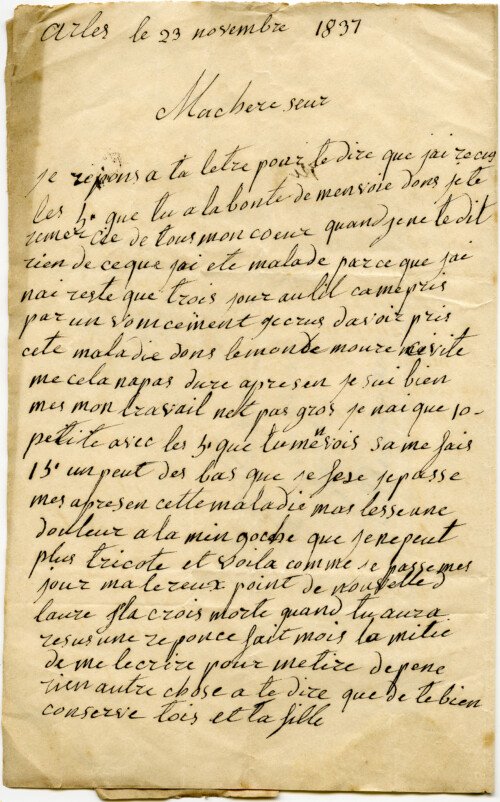 Arles le 23 novembre 1837
Machere seur
je repons a ta letre pour te dire que jai recus
les 5# que tu a la bonte de menvoie dons je te
remercie de tous mon coeur quand je ne te dit
rien de ce que jai ete malade parce que jai
nai reste que trois jour au lit ca me pris
par un vomicement je crus davoir pris
cete maladie dons le monde moure vite
me cela na pas dure apresen je sui bien
mes mon travail net pas gros je nai que 10
petite avec les 5# que tu menvois sa me fais
15# un peut des bas que je fese je passe
mes apresen cette maladie mas lesse une
douleur a la min goche que je ne peut
plus tricote et voila comme je passe mes
jour malereux point de nouvelle d
laure la crois morte quand tu aura
resus une reponce fait mois la mitie
de me lecrire pour me tire de pene
rien autre chose a te dire que de te bien
conserve tois et ta fille